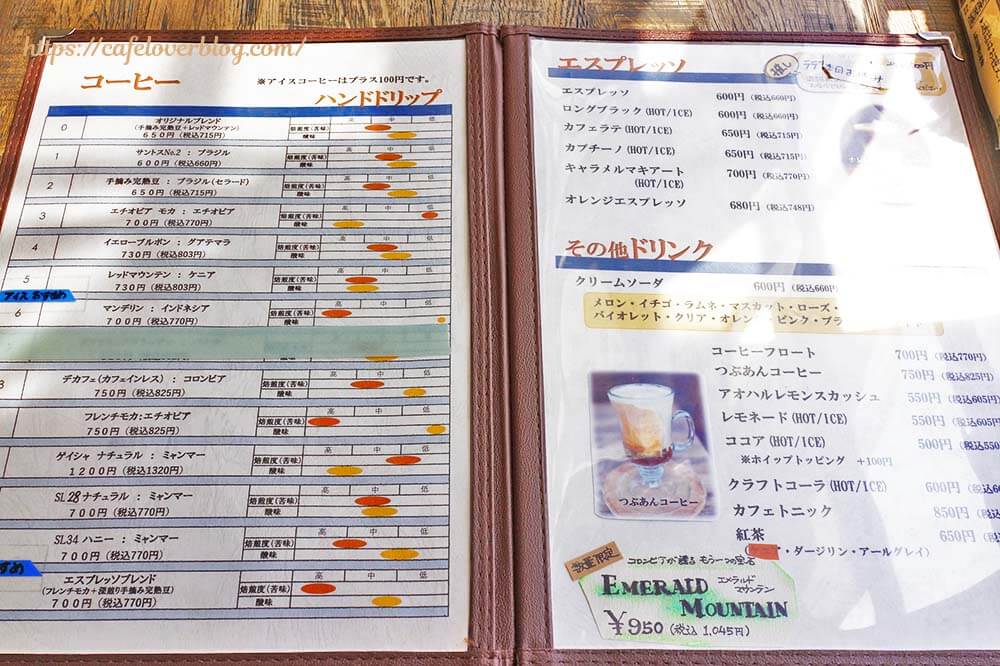 https://cafeloverblog.com/
コーヒー
※アイスコーヒーはプラス100円です。
ハンドドリップ
0
オリジナルブレンド
(手摘み完熟豆+レッドマウンテン)
650円(税込715円)
焙煎度(苦味)
酸味
高 中 低
1
サントスNo.2 : ブラジル
600円(税込660円)
焙煎度(苦味)
酸味
高 中 低
2
手摘み完熟豆 : ブラジル(セラード)
650円(税込715円)
焙煎度(苦味)
酸味
高 中 低
3
エチオピア モカ : エチオピア
700円(税込770円)
焙煎度(苦味)
酸味
高 中 低
4
イエローブルボン : グアテマラ
730円(税込803円)
焙煎度(苦味)
酸味
高 中 低
5
レッドマウンテン : ケニア
730円(税込803円)
焙煎度(苦味)
酸味
高 中 低
アイスおすすめ
6
マンデリン : インドネシア
700円(税込770円)
焙煎度(苦味)
酸味
高 中 低
デカフェ(カフェインレス) : コロンビア
750円(税込825円)
焙煎度(苦味)
酸味
高 中 低
フレンチモカ:エチオピア
750円(税込825円)
焙煎度(苦味)
酸味
高 中 低
ゲイシャ ナチュラル : ミャンマー
1200円(税込1320円)
焙煎度(苦味)
酸味
高 中 低
SL28ナチュラル : ミャンマー
700円(税込770円)
焙煎度(苦味)
酸味
高 中 低
SL34 ハニー : ミャンマー
700円(税込770円)
焙煎度(苦味)
酸味
高 中 低
エスプレッソブレンド
(フレンチモカ+深煎り手摘み完熟豆)
700円(税込770円)
焙煎度(苦味)
酸味
高 中 低
エスプレッソ
推し
エスプレッソ 600円(税込660円)
ロングブラック(HOT/ICE) 600円(税込660円)
カフェラテ(HOT/ICE) 650円(税込715円)
カプチーノ(HOT/ICE) 650円(税込715円)
キャラメルマキアート 700円(税込770円)
(HOT/ICE)
オレンジエスプレッソ 680円(税込748円)
その他ドリンク
クリームソーダ 600円(税込660円
メロン・イチゴ・ラムネ・マスカット・ローズ・
バイオレット・クリア・オレンジ・ピンク・ブラ
コーヒーフロート 700円(税込770円)
つぶあんコーヒー 750円(税込825円)
アオハルレモンスカッシュ 550円(税込605円)
レモネード(HOT/ICE) 550円(税込605円)
ココア(HOT/ICE) 500円(税込550
※ホイップトッピング +100円
クラフトコーラ(HOT/ICE) 600円(税込6
カフェトニック 850円(税込
紅茶 650円(税
・ダージリン・アールグレイ)
つぶあんコーヒー
数量限定
コロンビアが贈る もう一つの宝石
EMERALD MOUNTAIN
エメラルド
マウンテン
¥950(税込 1,045円)